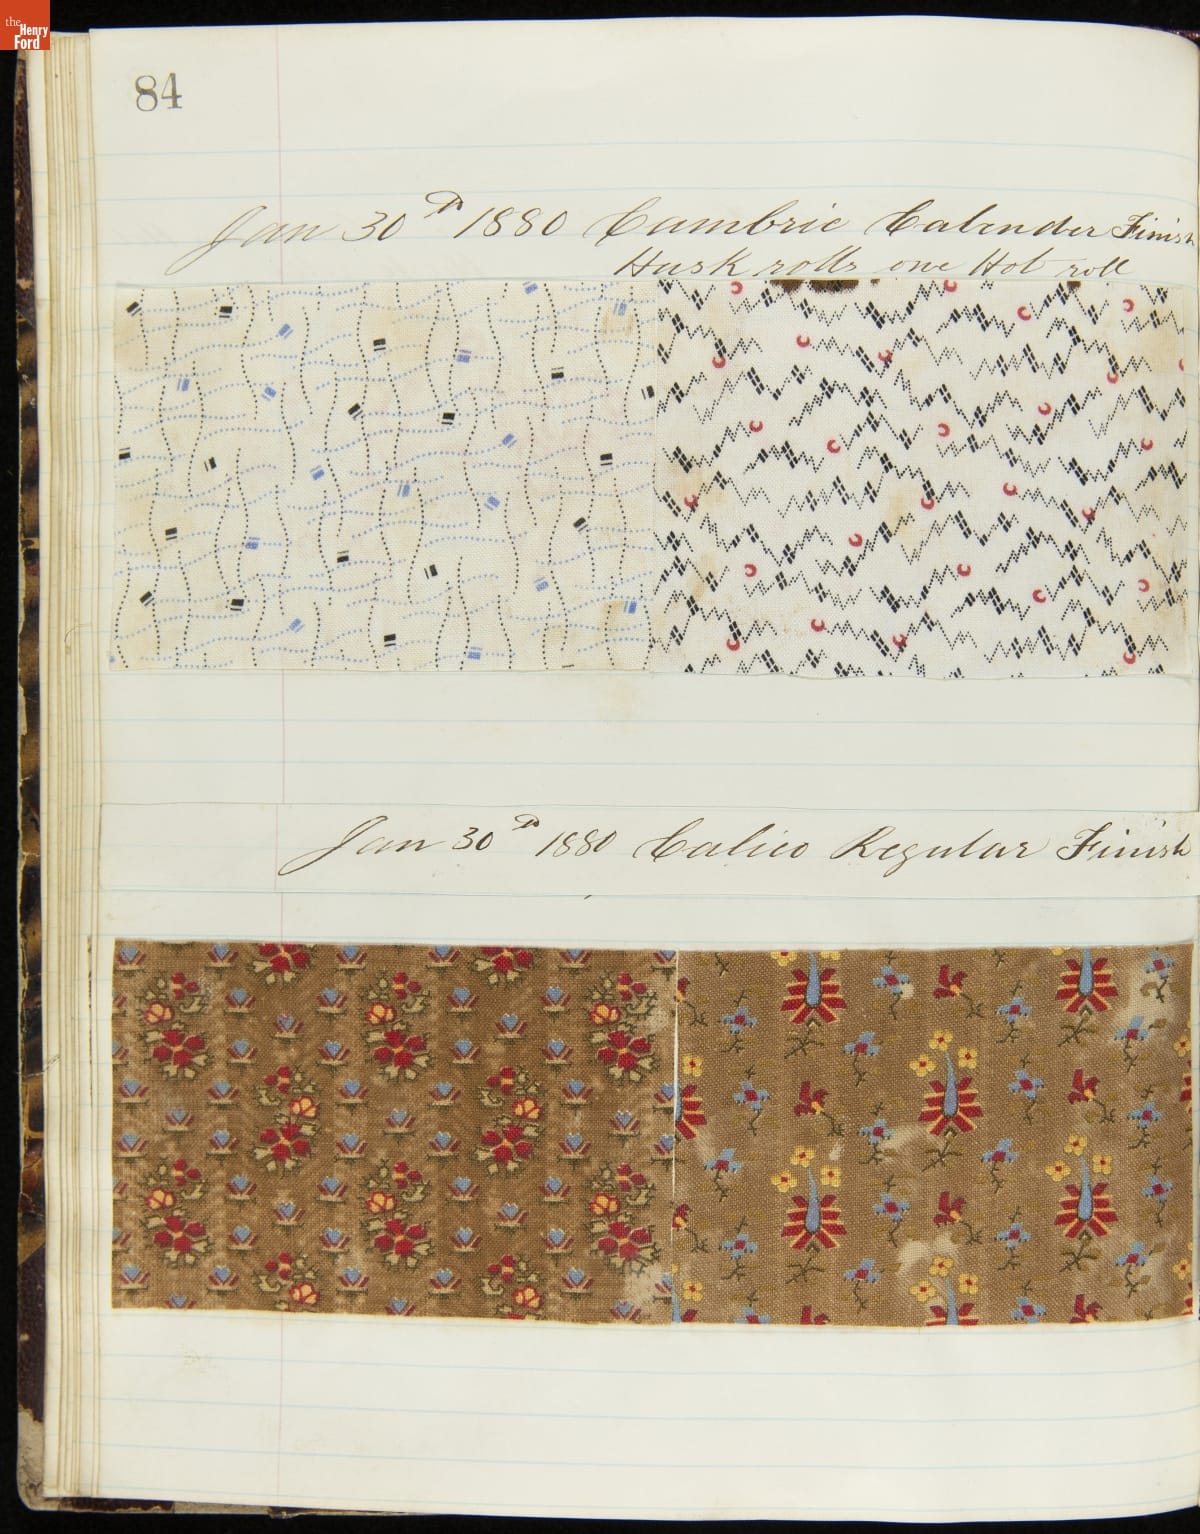 the
Henry
Ford
84
Jan 30th 1880 Cambric Calender Finish
Husk rolls one Hot roll
Jan 30th 1880 Calico Regular Finish